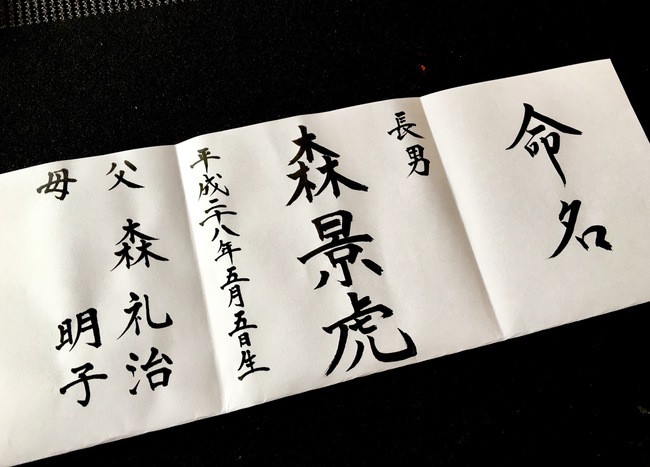 命名
長男
森景虎
平成二十八年五月五日生
父 森 礼治
母 明子